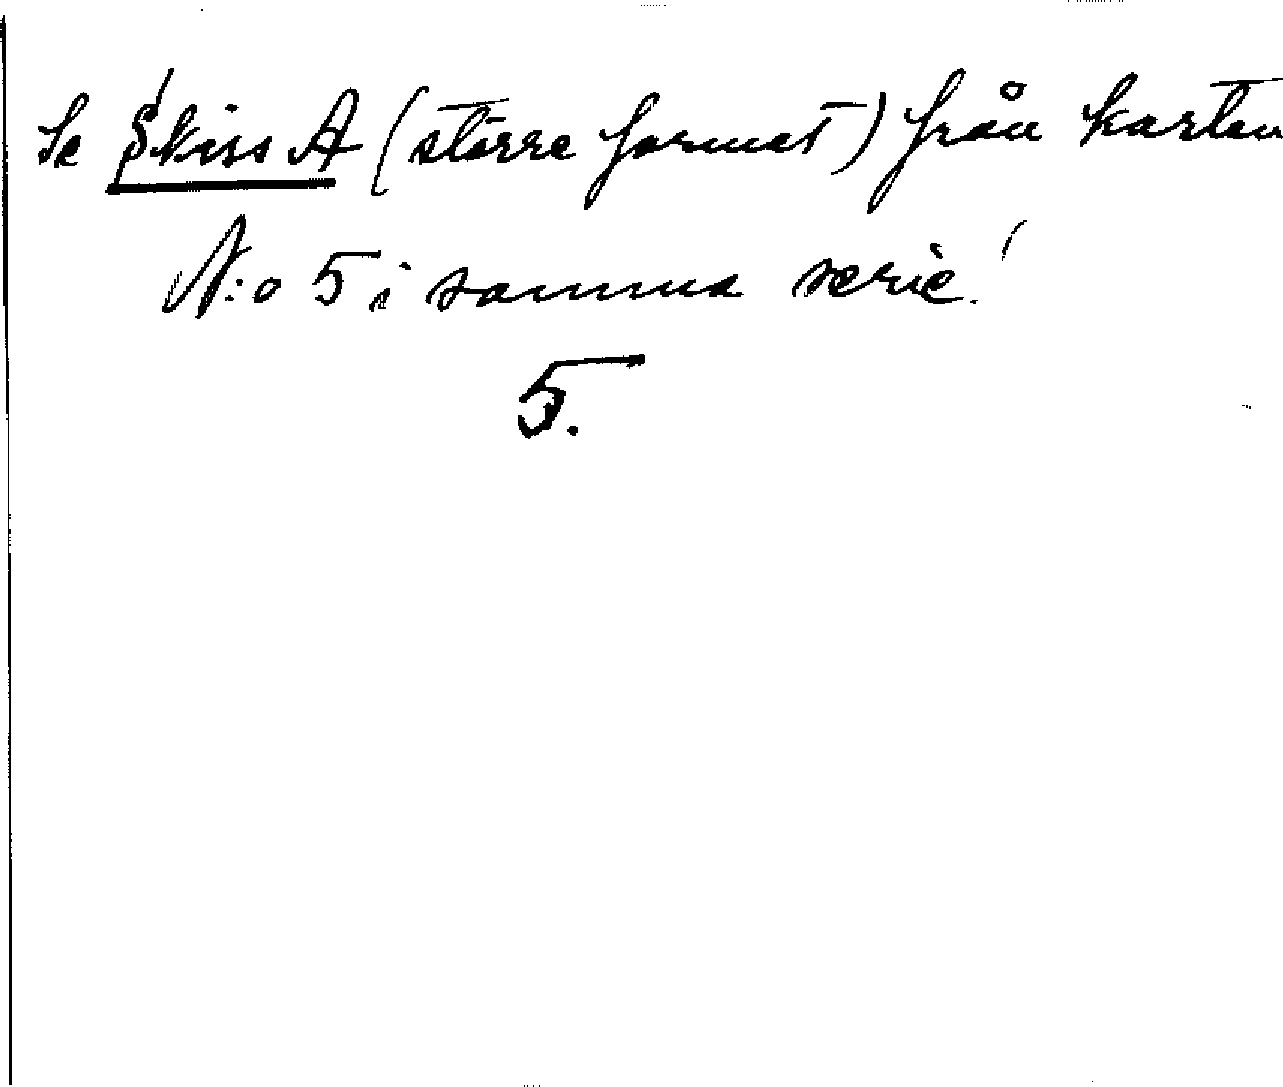 Se Skiss A (större format) från karten
N:o 5 i samma serie!
5.